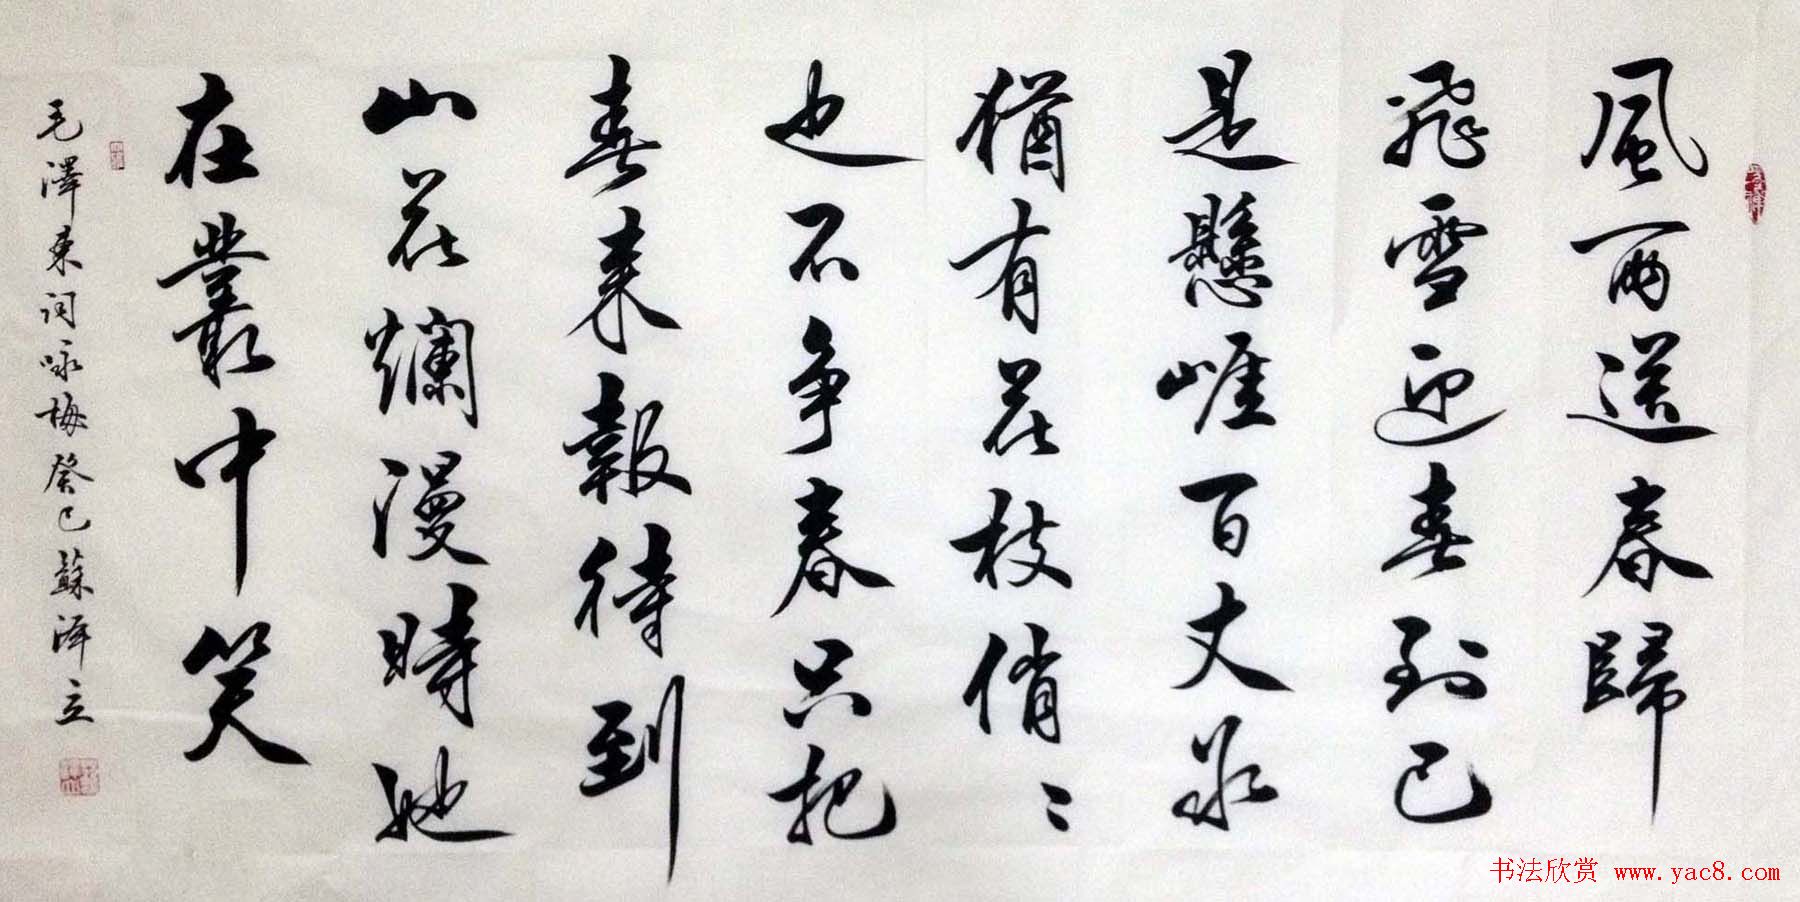 風雨送春歸
飛雪迎春到已
是懸崖百丈冰
猶有花枝俏〻
也不争春只把
春來報待到
山花爛漫時她
在叢中笑
毛澤東詞咏梅癸巳蘇澤立
书法欣赏 www.yac8.com